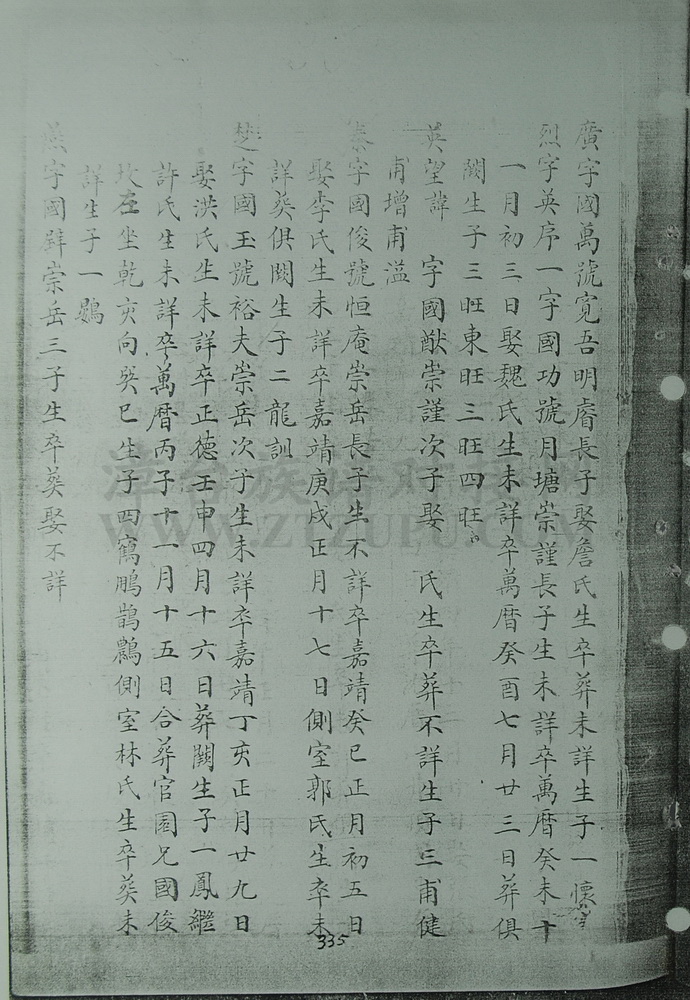 廣字國萬號寬吾明睿長子娶詹氏生卒葬未詳生子一懷
烈字英序一字國功號月塘崇謹長子生未詳卒萬曆癸未十
一月初三日娶魏氏生未詳卒萬曆癸酉七月廿三日葬俱
闕生子三旺東旺三旺四旺
英望諱　字國猷崇謹次子娶　氏生卒葬不詳生子三甫健
甫增甫溢
泰字國俊號恒庵崇岳長子生不詳卒嘉靖癸巳正月初五日
娶李氏生未詳卒嘉靖庚戌正月十七日側室郭氏生卒未
詳葵俱闕生子二龍訓
楚字國玉號裕夫崇岳次子生未詳卒嘉靖丁亥正月廿九日
娶洪氏生未詳卒正德壬申四月十六日葬闕生子一鳳繼
許氏生未詳卒萬曆丙子十一月十五日合葬官園兄國俊
坟左坐乾亥向巽巳生子四鸞鵬鵲鸛側室林氏生卒葵未
詳生子一鷃
燕字國辟崇岳三子生卒葵娶不詳
335
WWW.ZTZUPU.COM